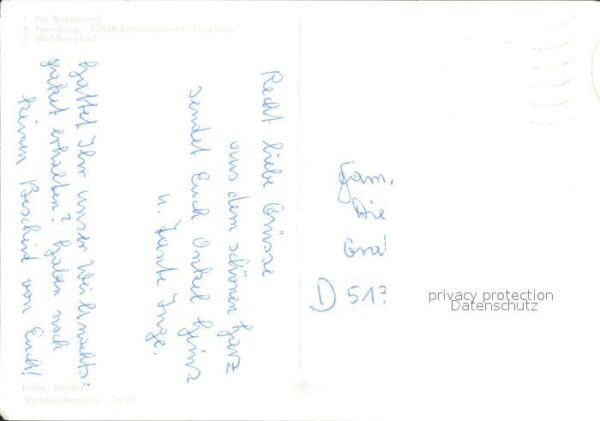 1. Am
2. Treseburg - FDGB-Erholungsheim
3.
Recht liebe Grüsse
aus dem schönen Harz
sendet Euch Onkel Heinz
u. Tante Inge.
Hattet Ihr unser Weihnachts-
paket erhalten? Haben noch
keinen Bescheid von Euch!
Fam.
Die
Gra
D 513
privacy protection
Datenschutz
Fotos:
Verbraucherpreis